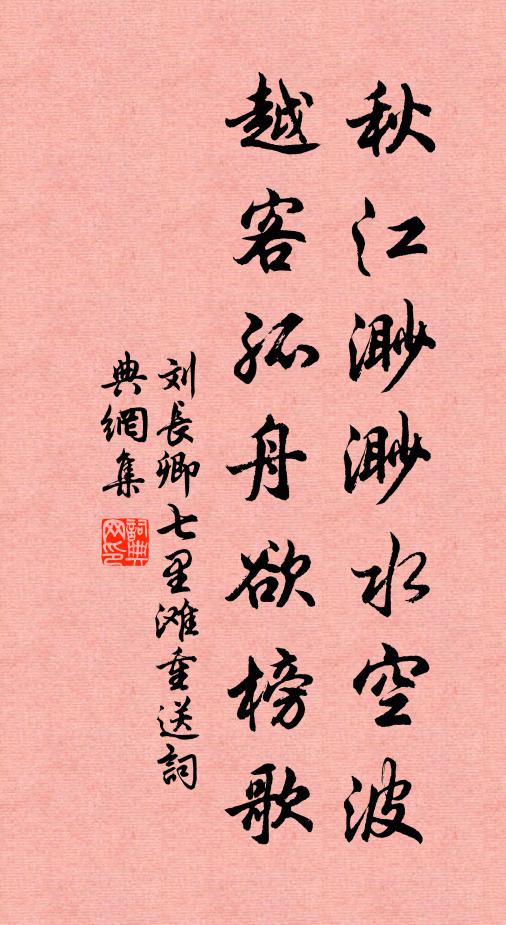 秋江渺渺水空波
越客孤舟欲榜歌
刘長卿七里滩重送詞
典網集
詞典
网印